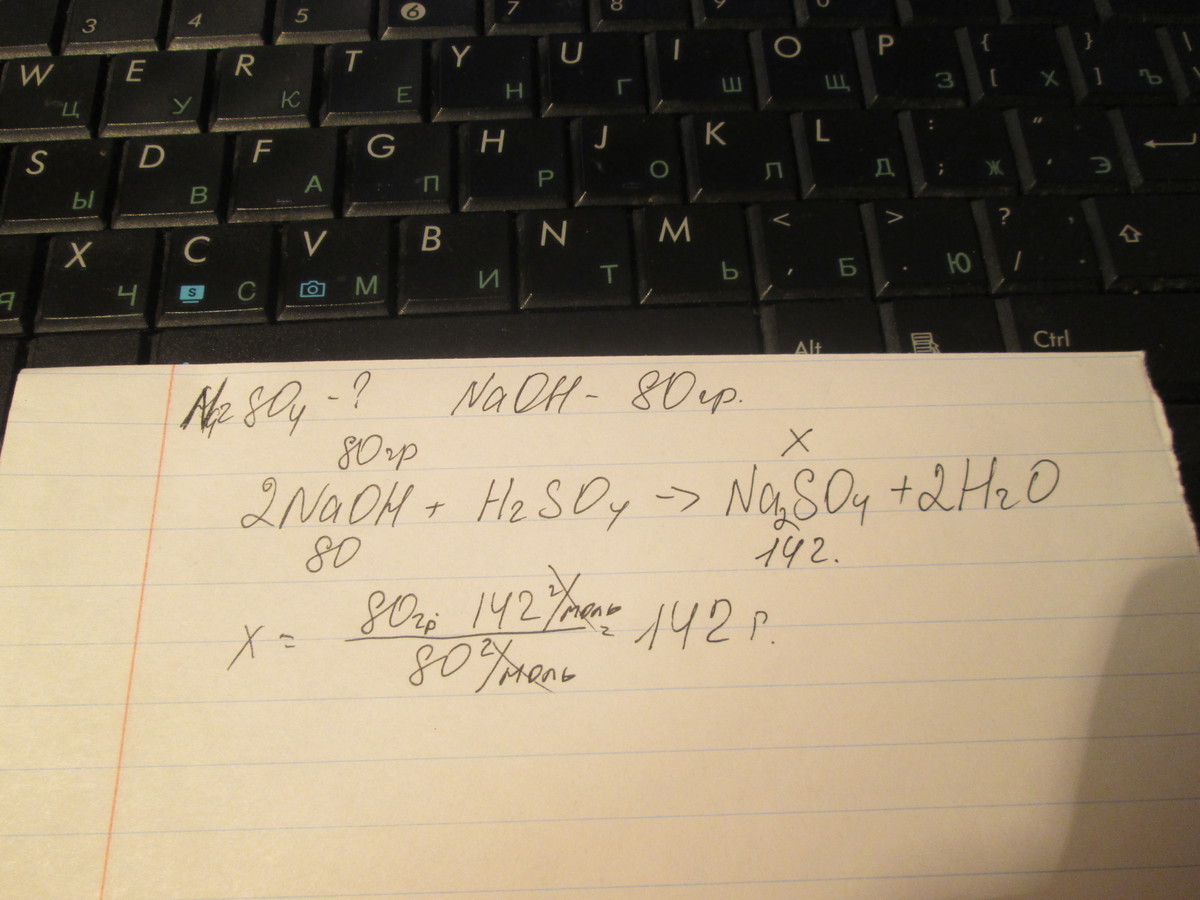 3 4 5 6 7 8 9
W Ц E У R К T Е Y Н U Г I Ш O Щ P З { [ Х } ] Ъ
S Ы D В F А G П H Р J О K Л L Д : ; Ж " ' Э
Я X Ч C S С V М B И N Т M Ь < , Б > . Ю ? / , .
Alt Ctrl
Na2SO4 - ? NaOH - 80гр.
80гр X
2NaOH + H2SO4 -> Na2SO4 + 2H2O
80 142.
X = 80гр 142 г/моль / 80 г/моль = 142 г.